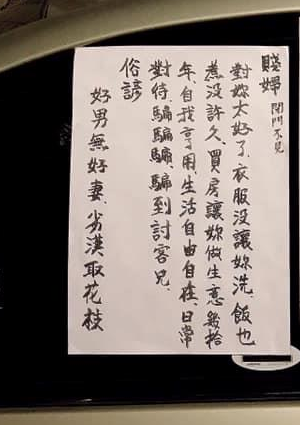 賤婦 閉門不見
對妳太好了、衣服没讓妳洗、飯也
煮没許久、買房讓妳做生意幾拾
年、自我享用、生活自由自在、日常
對待、騙騙騙騙到討客兄、
俗諺
好男無好妻、劣漢取花枝